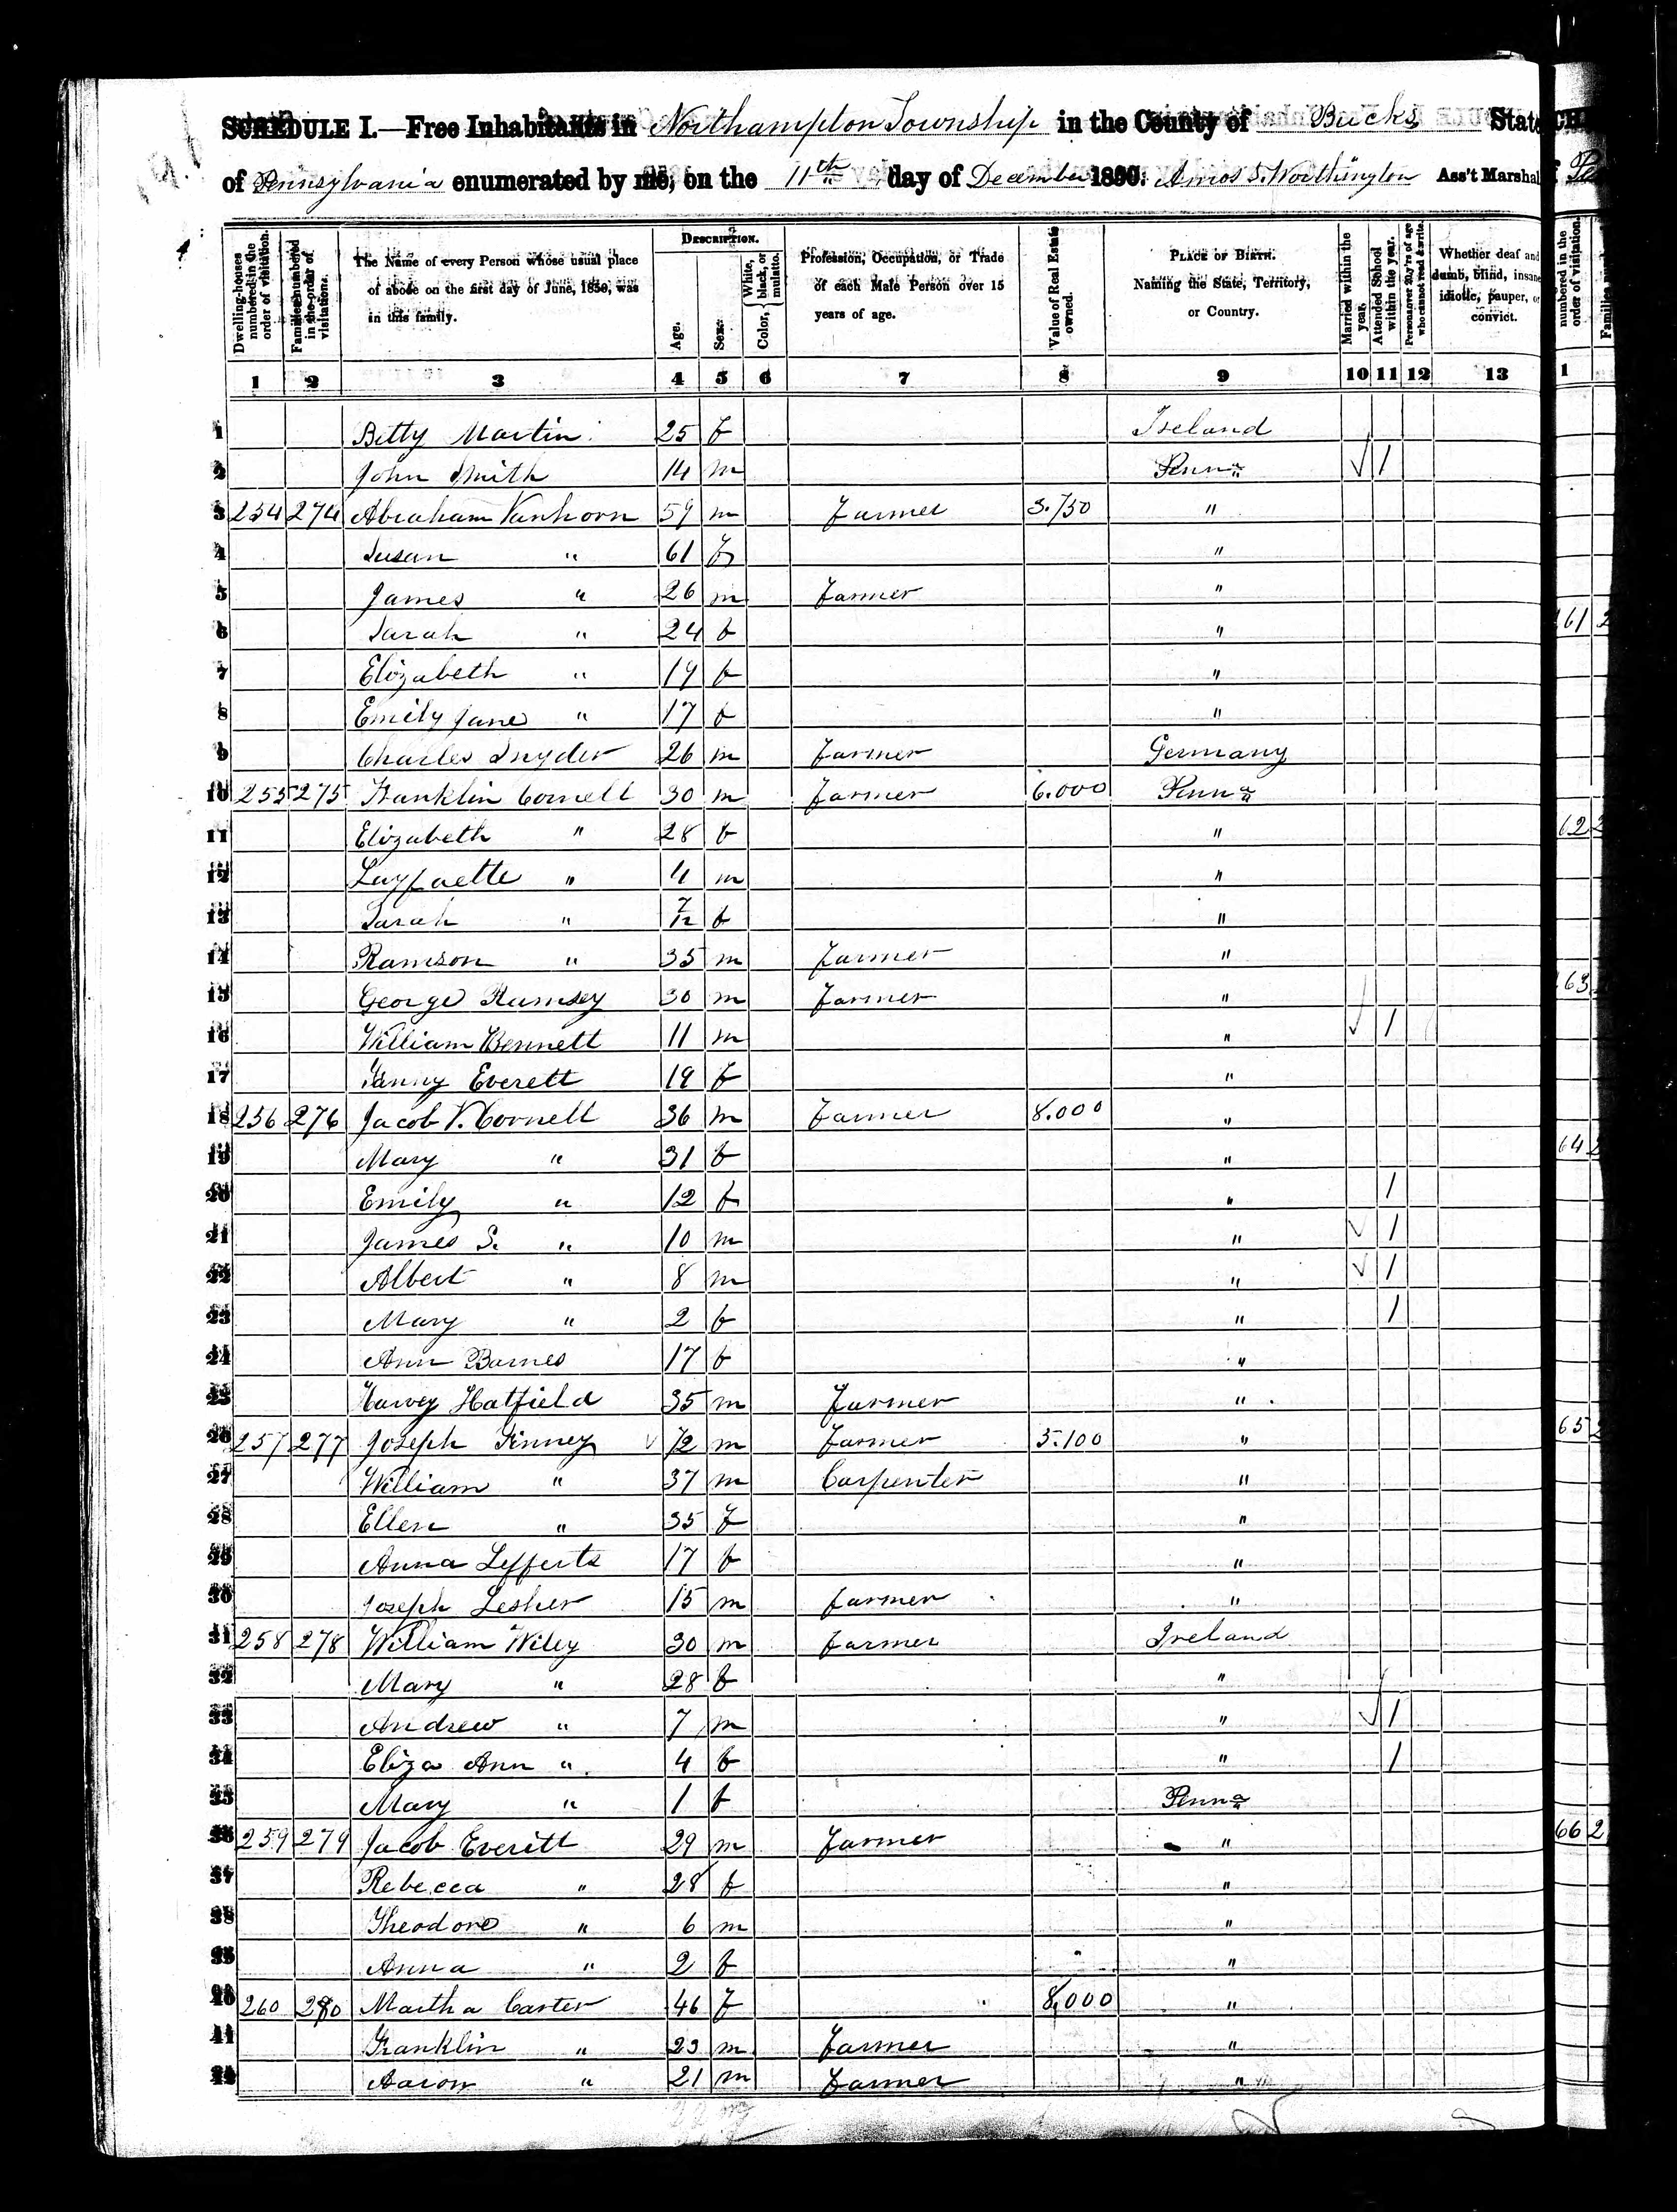 SCHEDULE I.—Free Inhabitants in Northampton Township in the County of Bucks State
of Pennsylvania enumerated by me, on the 11th day of December 1850. Amos S. Worthington Ass't Marshal
Dwelling-houses numbered in the order of visitation. Families numbered in the order of visitations. The Name of every Person whose usual place of abode on the first day of June, 1850, was in this family. DESCRIPTION. Age. Sex. Color, White, black, or mulatto. Profession, Occupation, or Trade of each Male Person over 15 years of age. Value of Real Estate owned. PLACE OF BIRTH. Naming the State, Territory, or Country. Married within the year. Attended School within the year. Persons over 20 y'rs of age who cannot read & write. Whether deaf and dumb, blind, insane, idiotic, pauper, or convict.
1 2 3 4 5 6 7 8 9 10 11 12 13
1 Betty Martin 25 f Ireland
2 John Smith 14 m Penna ✓ 1
3 254 274 Abraham Vanhorn 59 m Farmer 3.750 "
4 Susan " 61 f "
5 James " 26 m Farmer "
6 Sarah " 24 f "
7 Elizabeth " 19 f "
8 Emily Jane " 17 f "
9 Charles Snyder 26 m Farmer Germany
10 255 275 Franklin Cornell 30 m Farmer 6.000 Penna
11 Elizabeth " 28 f "
12 Layfaette " 4 m "
13 Sarah " 7/12 f "
14 Ramson " 35 m Farmer "
15 George Ramsey 30 m Farmer "
16 William Bennett 11 m " ✓ 1
17 Fanny Everett 19 f "
18 256 276 Jacob V. Cornell 36 m Farmer 8.000 "
19 Mary " 31 f "
20 Emily " 12 f " 1
21 James S. " 10 m " ✓ 1
22 Albert " 8 m " ✓ 1
23 Mary " 2 f " 1
24 Ann Barnes 17 f "
25 Harvey Hatfield 35 m Farmer "
26 257 277 Joseph Finney ✓ 72 m Farmer 5.100 "
27 William " 37 m Carpenter "
28 Ellen " 35 f "
29 Anna Lefferts 17 f "
30 Joseph Lesher 15 m Farmer "
31 258 278 William Wiley 30 m Farmer Ireland
32 Mary " 28 f "
33 Andrew " 7 m " ✓ 1
34 Eliza Ann " 4 f " 1
35 Mary " 1 f Penna
36 259 279 Jacob Everitt 29 m Farmer "
37 Rebecca " 28 f "
38 Theodore " 6 m "
39 Anna " 2 f "
40 260 280 Martha Carter 46 f 8,000 "
41 Franklin " 23 m Farmer "
42 Aaron " 21 m Farmer "